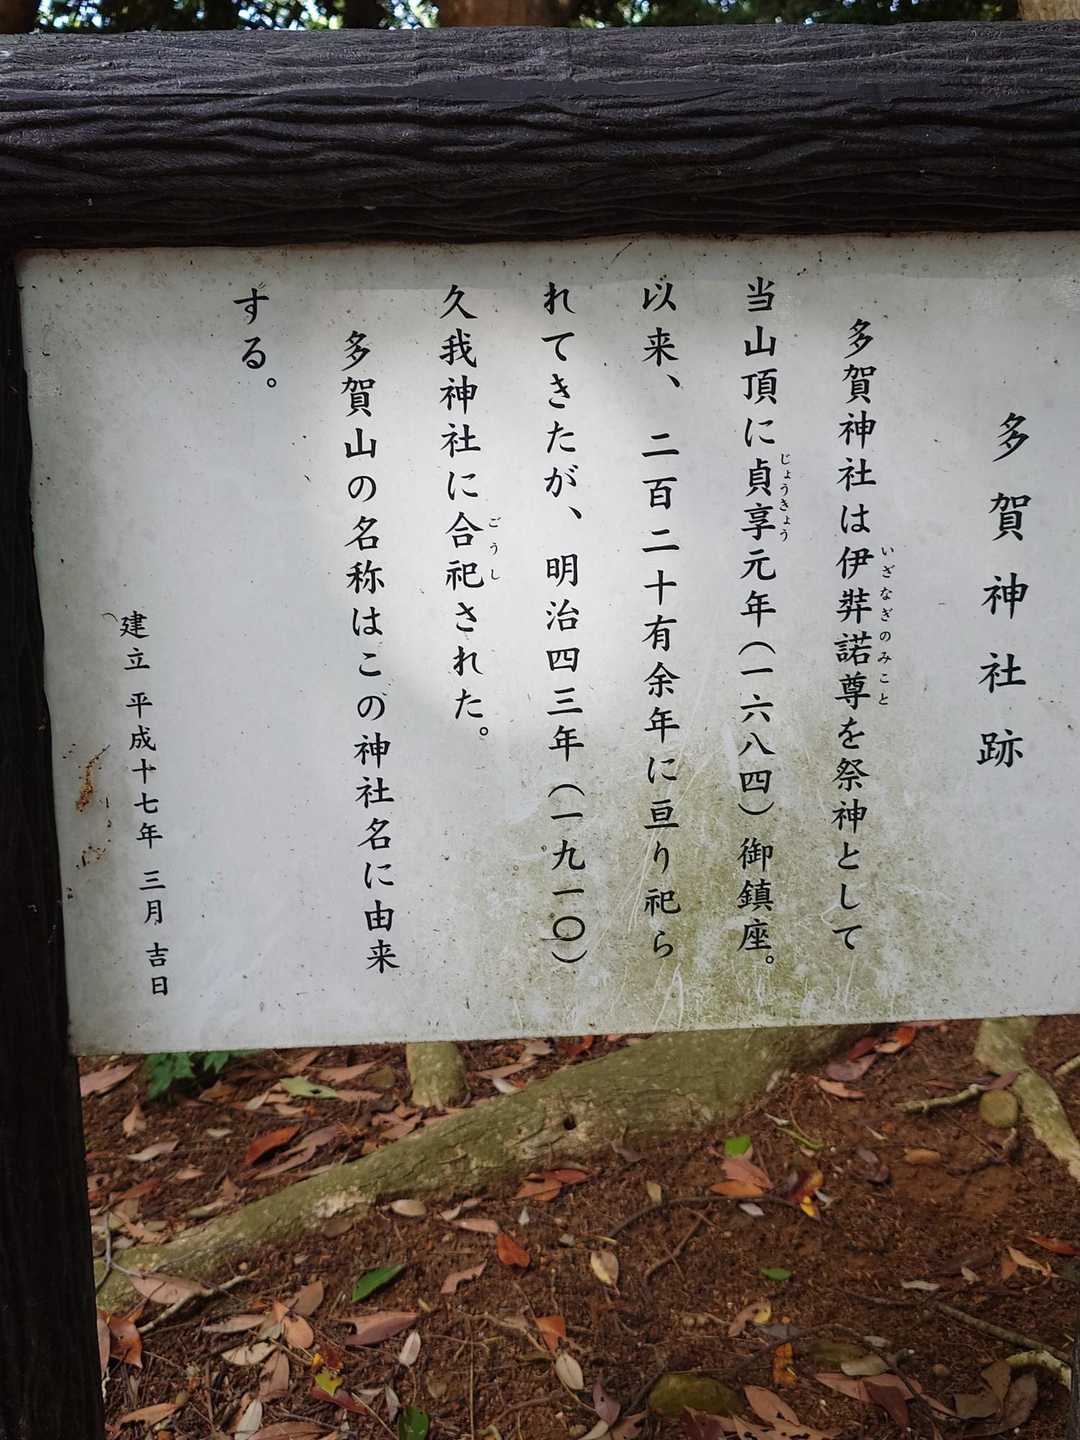 多賀神社跡
多賀神社は伊弉諾尊を祭神として
いざなぎのみこと
当山頂に貞享元年（一六八四）御鎮座。
じょうきょう
以来、二百二十有余年に亘り祀ら
れてきたが、明治四三年（一九一〇）
久我神社に合祀された。
ごうし
多賀山の名称はこの神社名に由来
する。
建立 平成十七年 三月 吉日